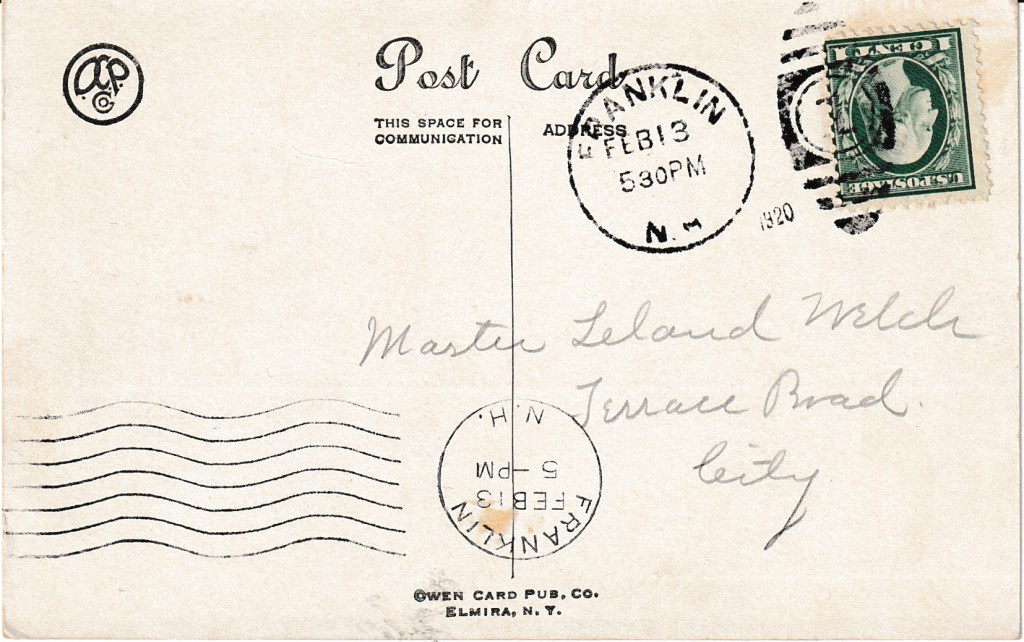 O.C.P. Co.
Post Card
THIS SPACE FOR
COMMUNICATION
ADDRESS
FRANKLIN
FEB 13
530PM
N. H
1920
1 CENT 1
U.S. POSTAGE
Master Leland Welch
Terrace Road.
City
FRANKLIN
FEB 13
5-PM
N.H.
OWEN CARD PUB. CO.
ELMIRA, N. Y.